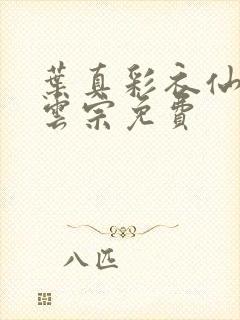 葉真彩衣仙
雲宗免費
八匹